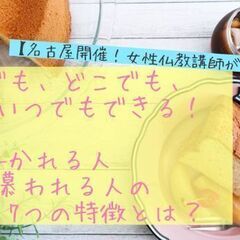 【名古屋開催！女性仏教講師が
でも、どこでも、
いつでもできる！
かれる人
慕われる人の
7つの特徴とは？